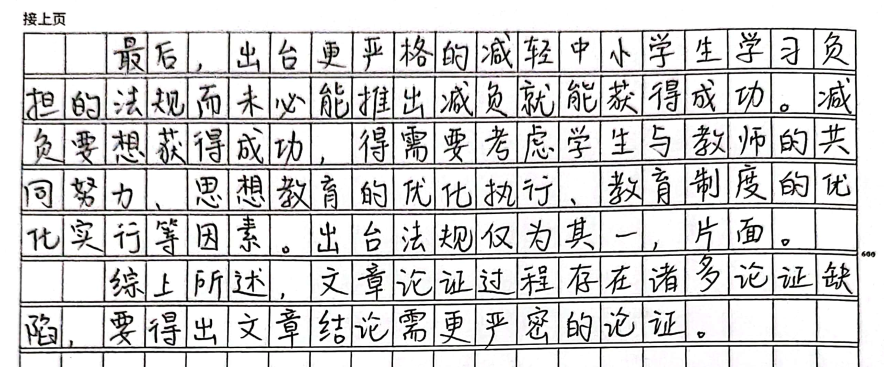 接上页
最后，出台更严格的减轻中小学生学习负
担的法规而未必能推出减负就能获得成功。减
负要想获得成功，得需要考虑学生与教师的共
同努力、思想教育的优化执行、教育制度的优
化实行等因素。出台法规仅为其一，片面。
600
综上所述，文章论证过程存在诸多论证缺
陷，要得出文章结论需更严密的论证。